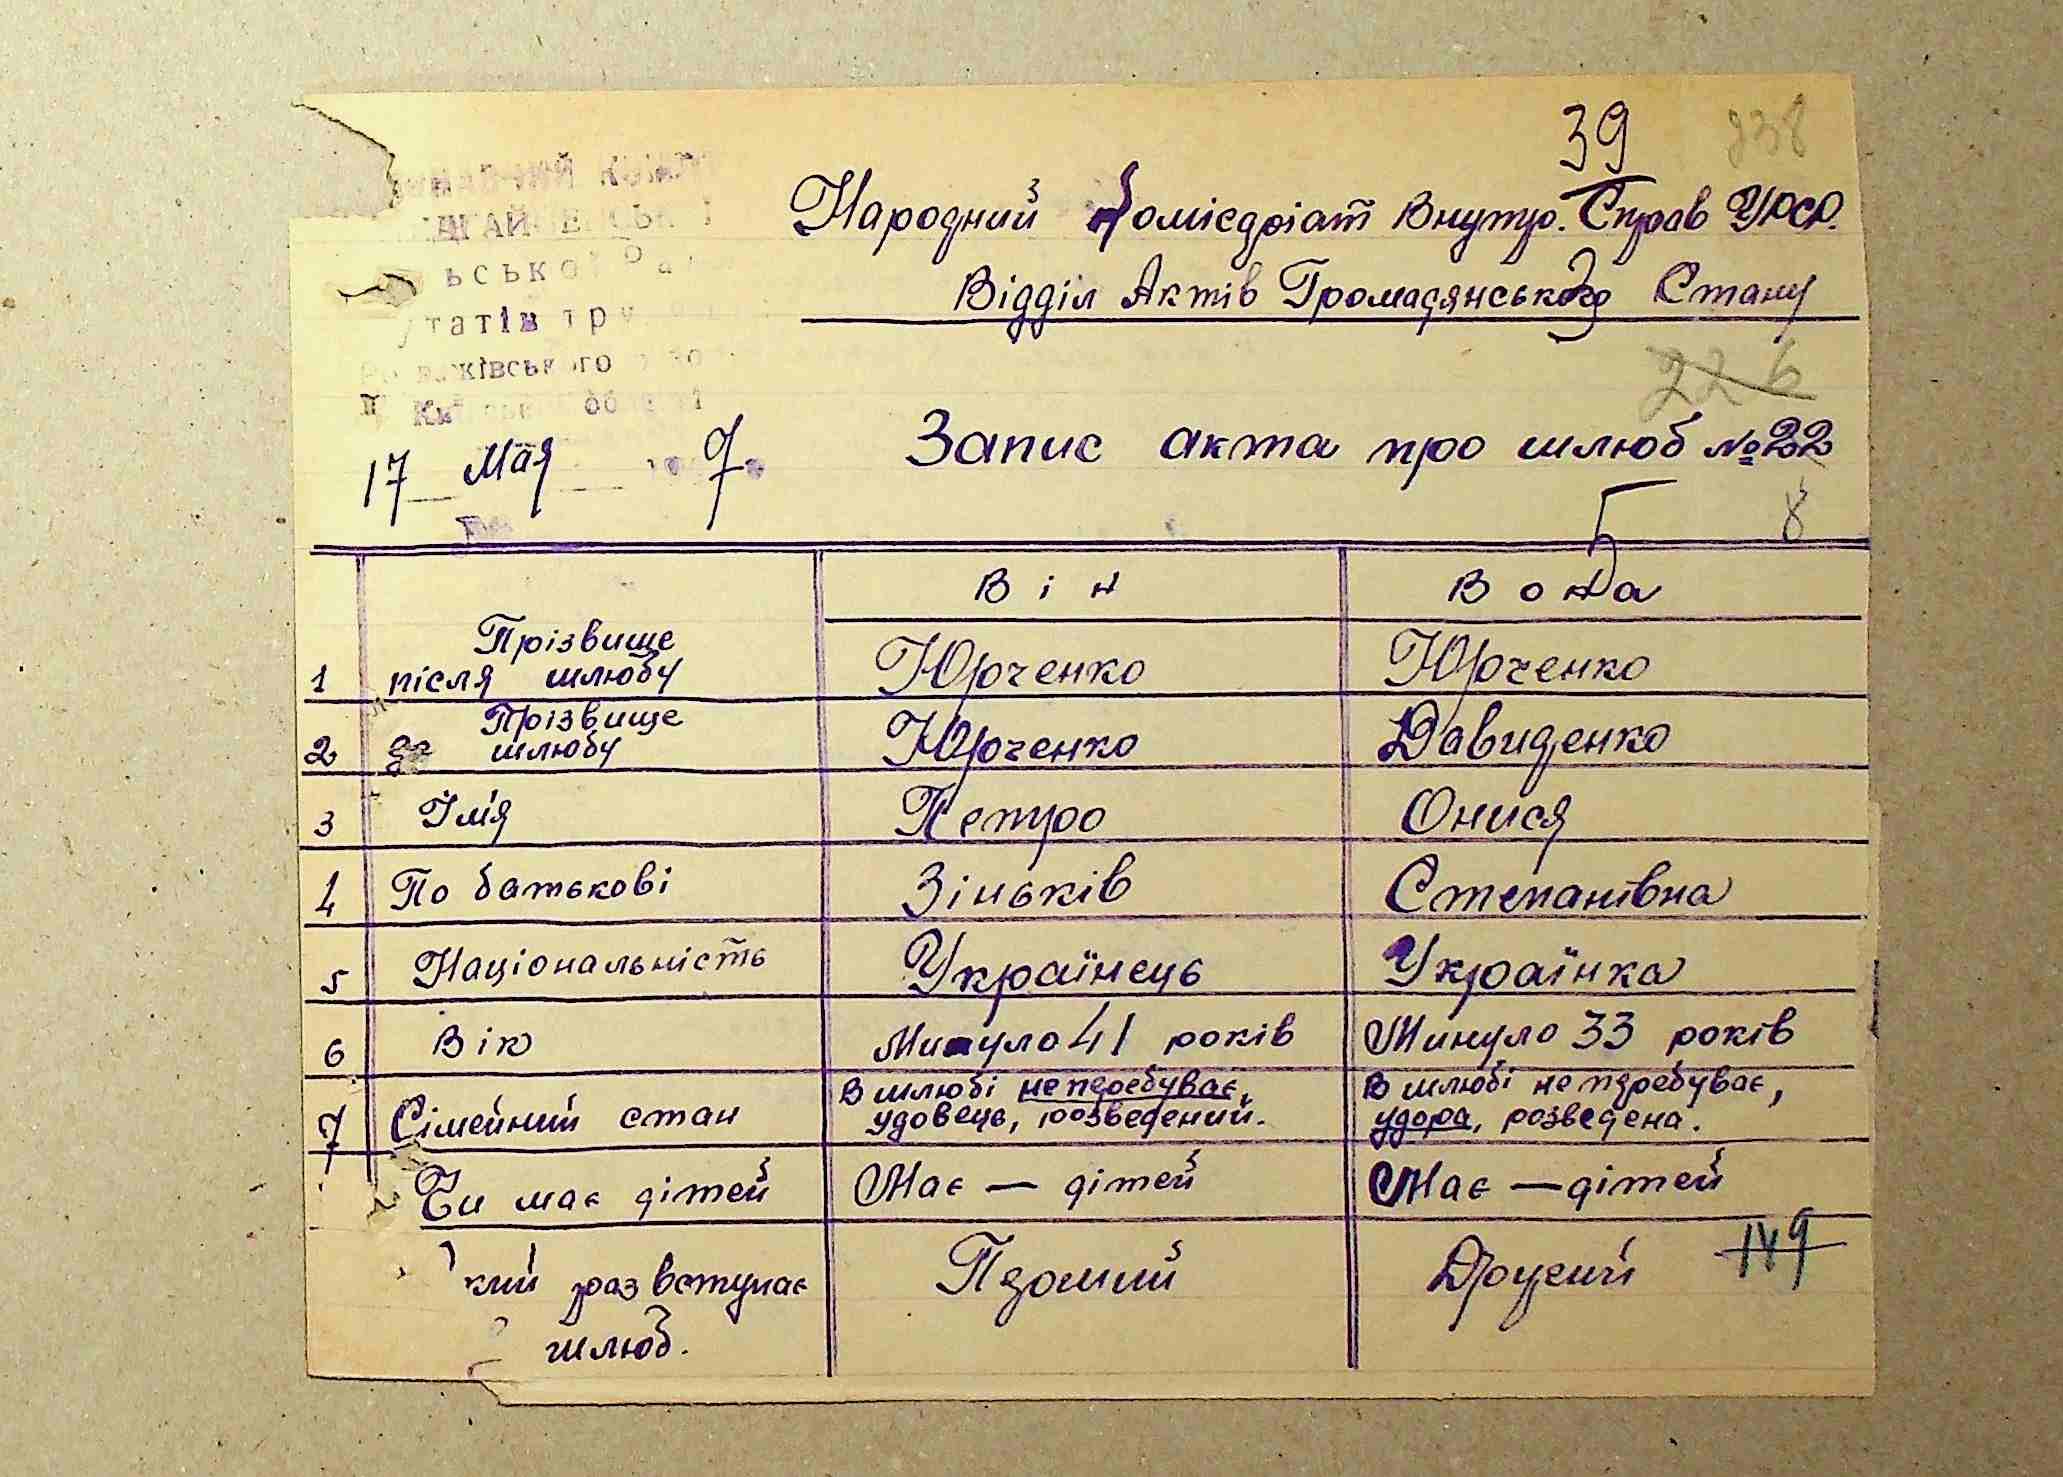 39 238
Народний Комісаріат Внутр. Справ УРСР.
Відділ Актів Громадянського Стану
226
17 Мая 7
Запис акта про шлюб №22
5 8
Він Вона
1 Прізвище
після шлюбу Юрченко Юрченко
2 Прізвище
до шлюбу Юрченко Давиденко
3 Ім'я Петро Онися
4 По батькові Зіньків Степанівна
5 Національність Українець Українка
6 Вік Минуло 41 років Минуло 33 років
7 Сімейний стан В шлюбі не перебуває, удовець, розведений. В шлюбі не перебуває, удова, розведена.
Чи має дітей Має — дітей Має — дітей
кий раз вступає Перший Другий 149
шлюб.